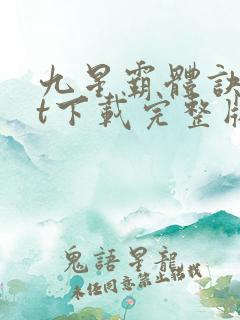 九星霸體訣
t下載完整版
鬼語星龍
未經同意禁止轉載